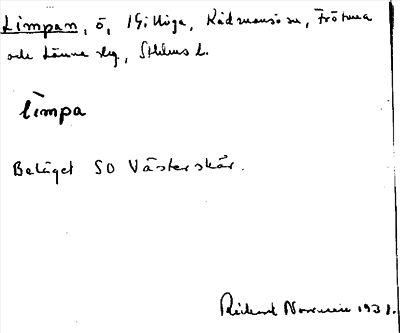 Limpan, ö, i Gillöga, Rådmansö sn, Frötuna
och Länna skg, Sthlms l.
limpa
Beläget SO Västerskär.
Rickard 1931.